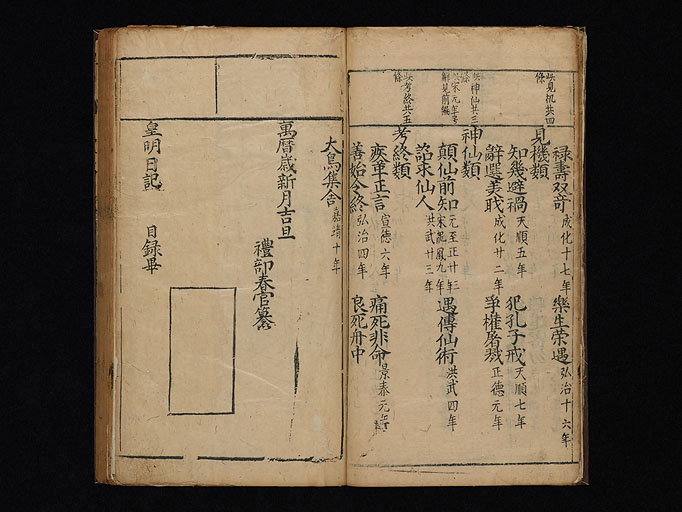 祿壽双奇 成化十七年 樂生荣遇 弘治十六年
共見机共四條
見機類
知幾避禍 天順五年 犯孔子戒 天順七年
辭選美職 成化廿二年 爭權屠戮 正德元年
共神仙共三條
神仙類
共宋元年号解見前編
顛仙前知 元至正廿年三宋龍鳳九年 遇傳仙術 洪武四年
詔求仙人 洪武廿三年
共考終共五條
考終類
疾革正言 宣德六年 痛死非命 景泰元年
善始令終 弘治四年 良死舟中
大鳥集舍 嘉靖十年
萬曆歲新月吉旦
禮部春官纂
皇明日記 目録畢